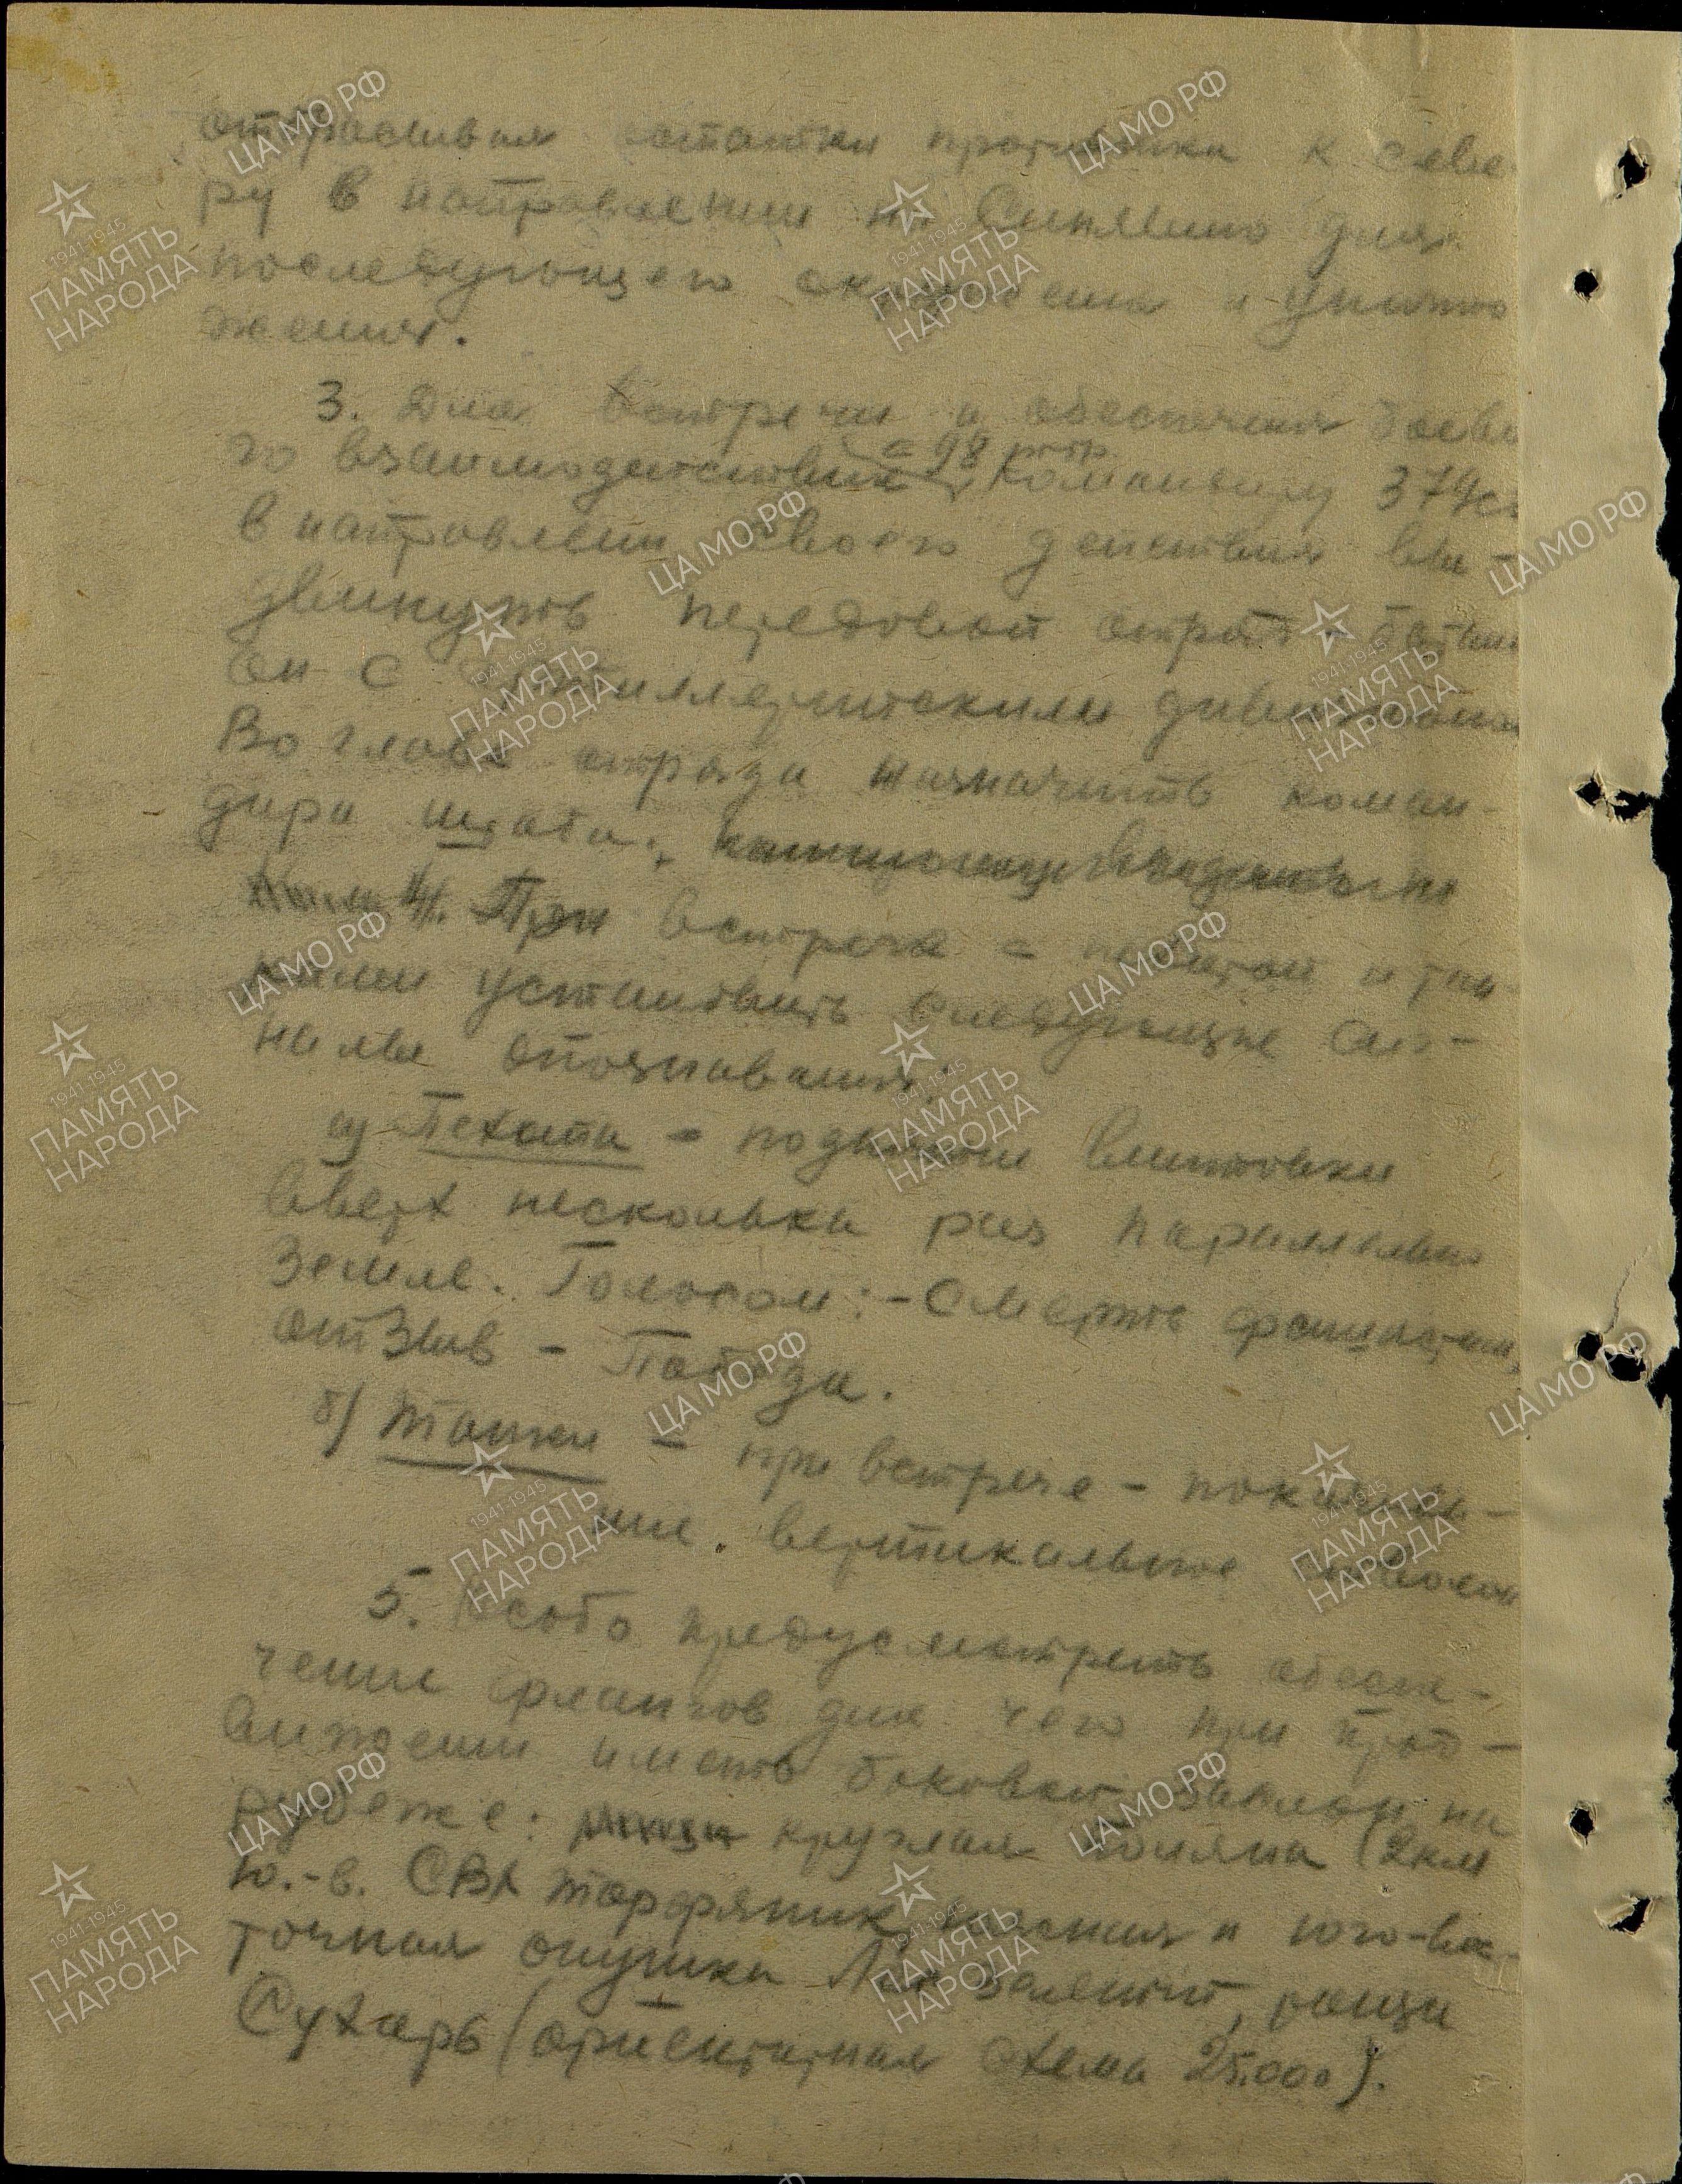 отбрасывая остатки противника к севе
ру в направлении на Синявино для
последующего окружения и уничто
жения.
3. Для встречи и обеспечения боево
го взаимодействия с 98 командиру 379
в направлении своего действия вы-
двинуть передовой отряд - баталь
он с артиллерийским дивизионом
Во главе отряда назначить коман-
дира штаба.
4. При встрече с пехотой и тан-
ками установить следующие сиг-
налы опознавания:
а) Пехота - поднятие винтовки
вверх несколько раз параллельно
земле. Голосом: - Смерть фашистам,
отзыв - Победа.
б) Танки - при встрече - покачива-
ние. вертикальное
5. Особо предусмотреть обеспе-
чение флангов для чего при прод-
вижении иметь боковой заслон на
рубеже: круглая поляна (2 км
ю.-в. торфяник, и юго-вос-
точная опушка роща
Сухарь (схема 25.000).
ЦА МО РФ
1941-1945
ПАМЯТЬ
НАРОДА